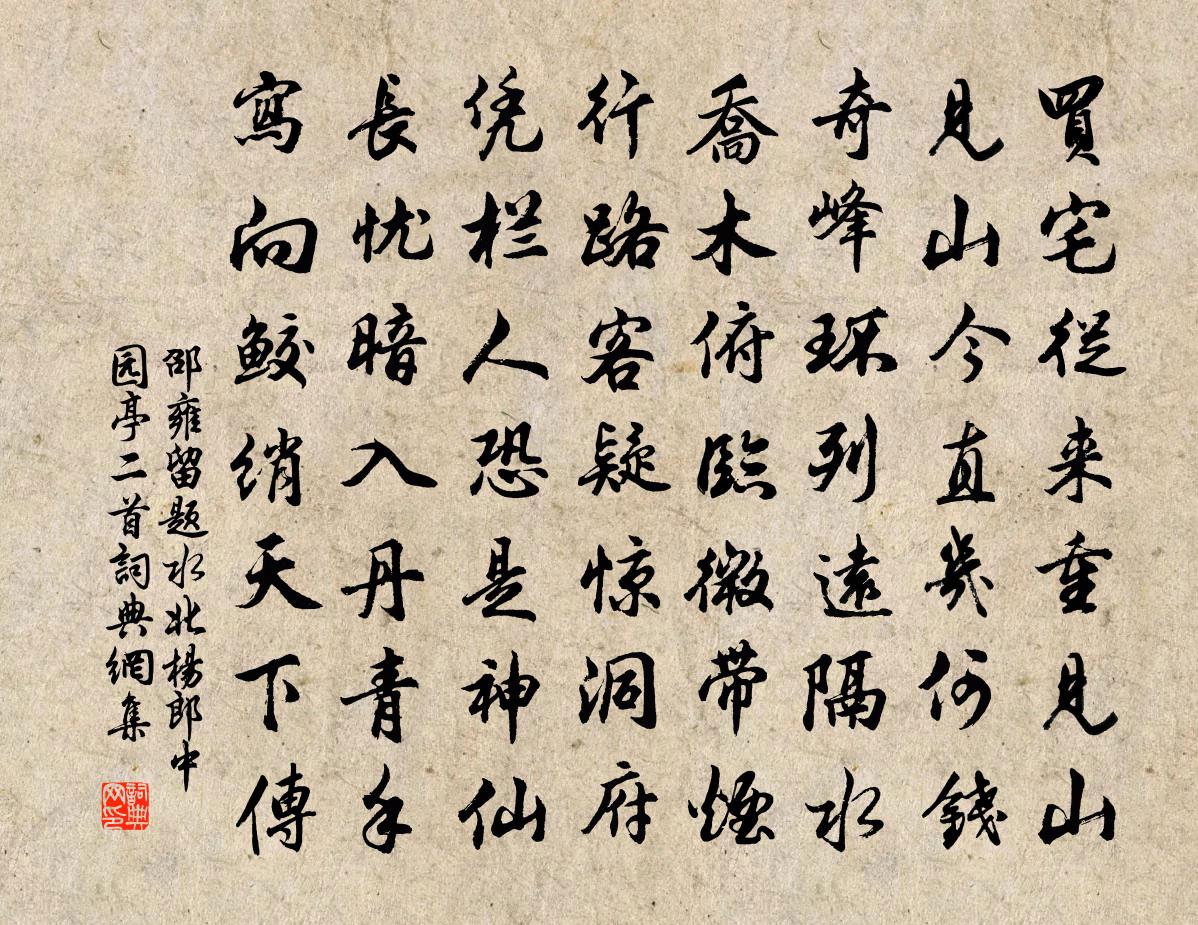 買宅従来重見山
見山今直幾何錢
奇峰環列遠隔水
喬木俯臨微帶煙
行路客疑惊洞府
凭栏人恐是神仙
長忧暗入丹青手
寫向鮫綃天下傳
邵雍留题水北楊郎中
园亭二首詞典網集
詞典
网印